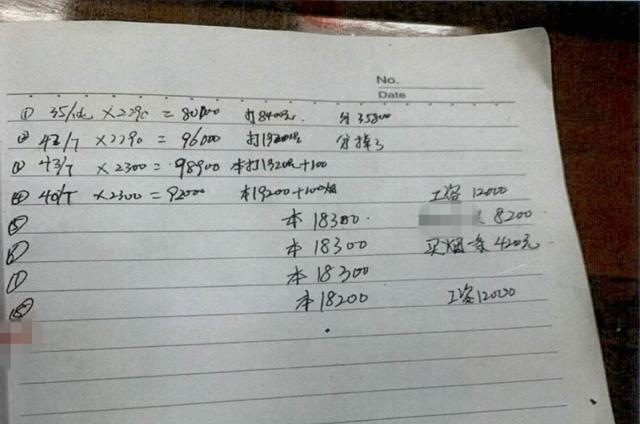 No.
Date
① 35/ × 2290 = 80000 打8400元 分 35800
② 42/T × 2290 = 96000 打19200元 分掉了
③ 43/T × 2300 = 98900 本打19200+100
④ 40/T × 2300 = 92000 本19200+100 工资 12000
⑤ 本 18300 8200
⑥ 本 18300 买烟 420元
⑦ 本 18300
⑧ 本 18200 工资 12000